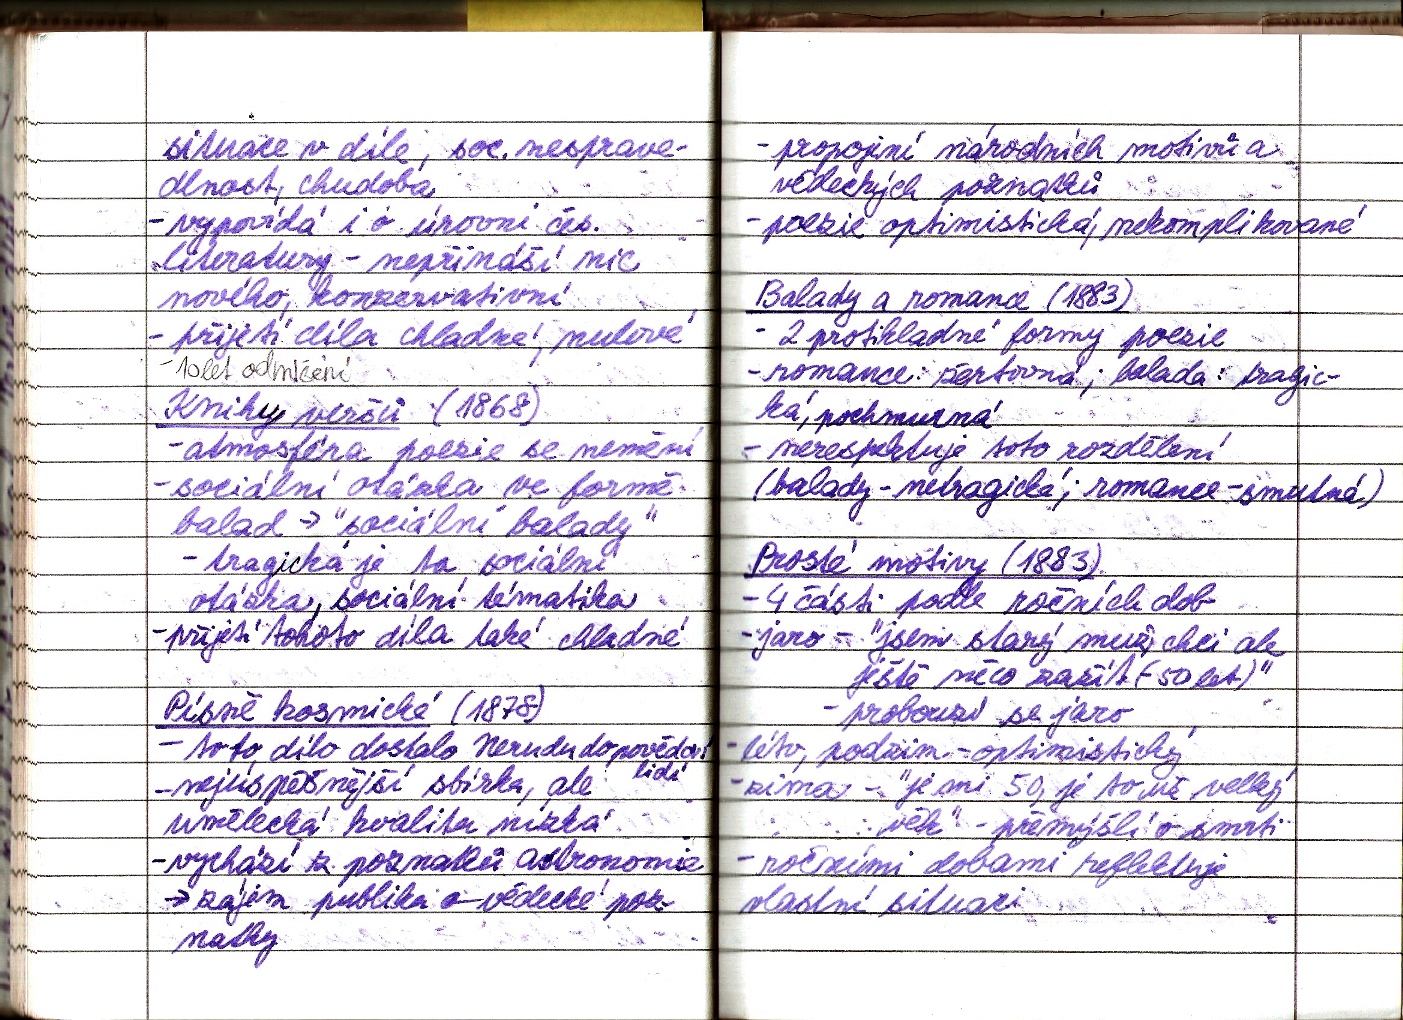 situace v díle, soc. nesprave-
dlnost, chudoba
- vypovídá i o úrovni čes.
literatury - nepřináší nic
nového, konzervativní
- přijetí díla chladné, nulové
- 10 let odmlčení
Knihy veršů (1868)
- atmosféra poezie se nemění
- sociální otázka ve formě
balad → "sociální balady"
- tragická je ta sociální
otázka, sociální tématika
- přijetí tohoto díla také chladné
Písně kosmické (1878)
- toto dílo dostalo Nerudu do povědomí
lidí
- nejúspěšnější sbírka, ale
umělecká kvalita nízká
- vychází z poznatků astronomie
→ zájem publika o vědecké poz-
natky
- propojení národních motivů a
vědeckých poznatků
- poezie optimistická, nekomplikované
Balady a romance (1883)
- 2 protikladné formy poezie
- romance: žertovná; balada: tragic-
ká, pochmurná
- nerespektuje toto rozdělení
(balady - netragická; romance - smutná)
Prosté motivy (1883)
- 4 části podle ročních dob
- jaro - "jsem starý muž, chci ale
ještě něco zažít (-50 let)"
- probouzí se jaro
- léto, podzim - optimistický
- zima - "je mi 50, je to už velký
věk" - přemýšlí o smrti
- ročními dobami reflektuje
vlastní situaci